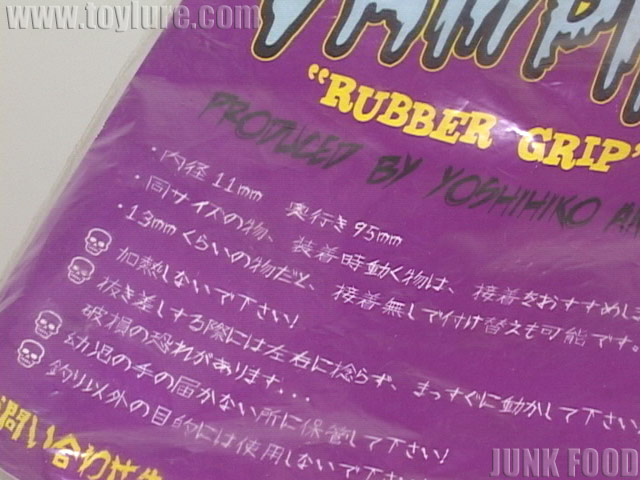 www.toylure.com
"RUBBER GRIP"
PRODUCED BY YOSHIHIKO
・内径 11mm 奥行き 95mm
・同サイズの物、装着時動く物は、接着をおすすめし
・13mmくらいの物だと、接着無しで付け替えも可能です。
加熱しないで下さい!
抜き差しする際には左右に捻らず、まっすぐに動かして下さい
破損の恐れがあります...
幼児の手の届かない所に保管して下さい!
釣り以外の目的には使用しないで下さ
問い合わせ
JUNK FOOD